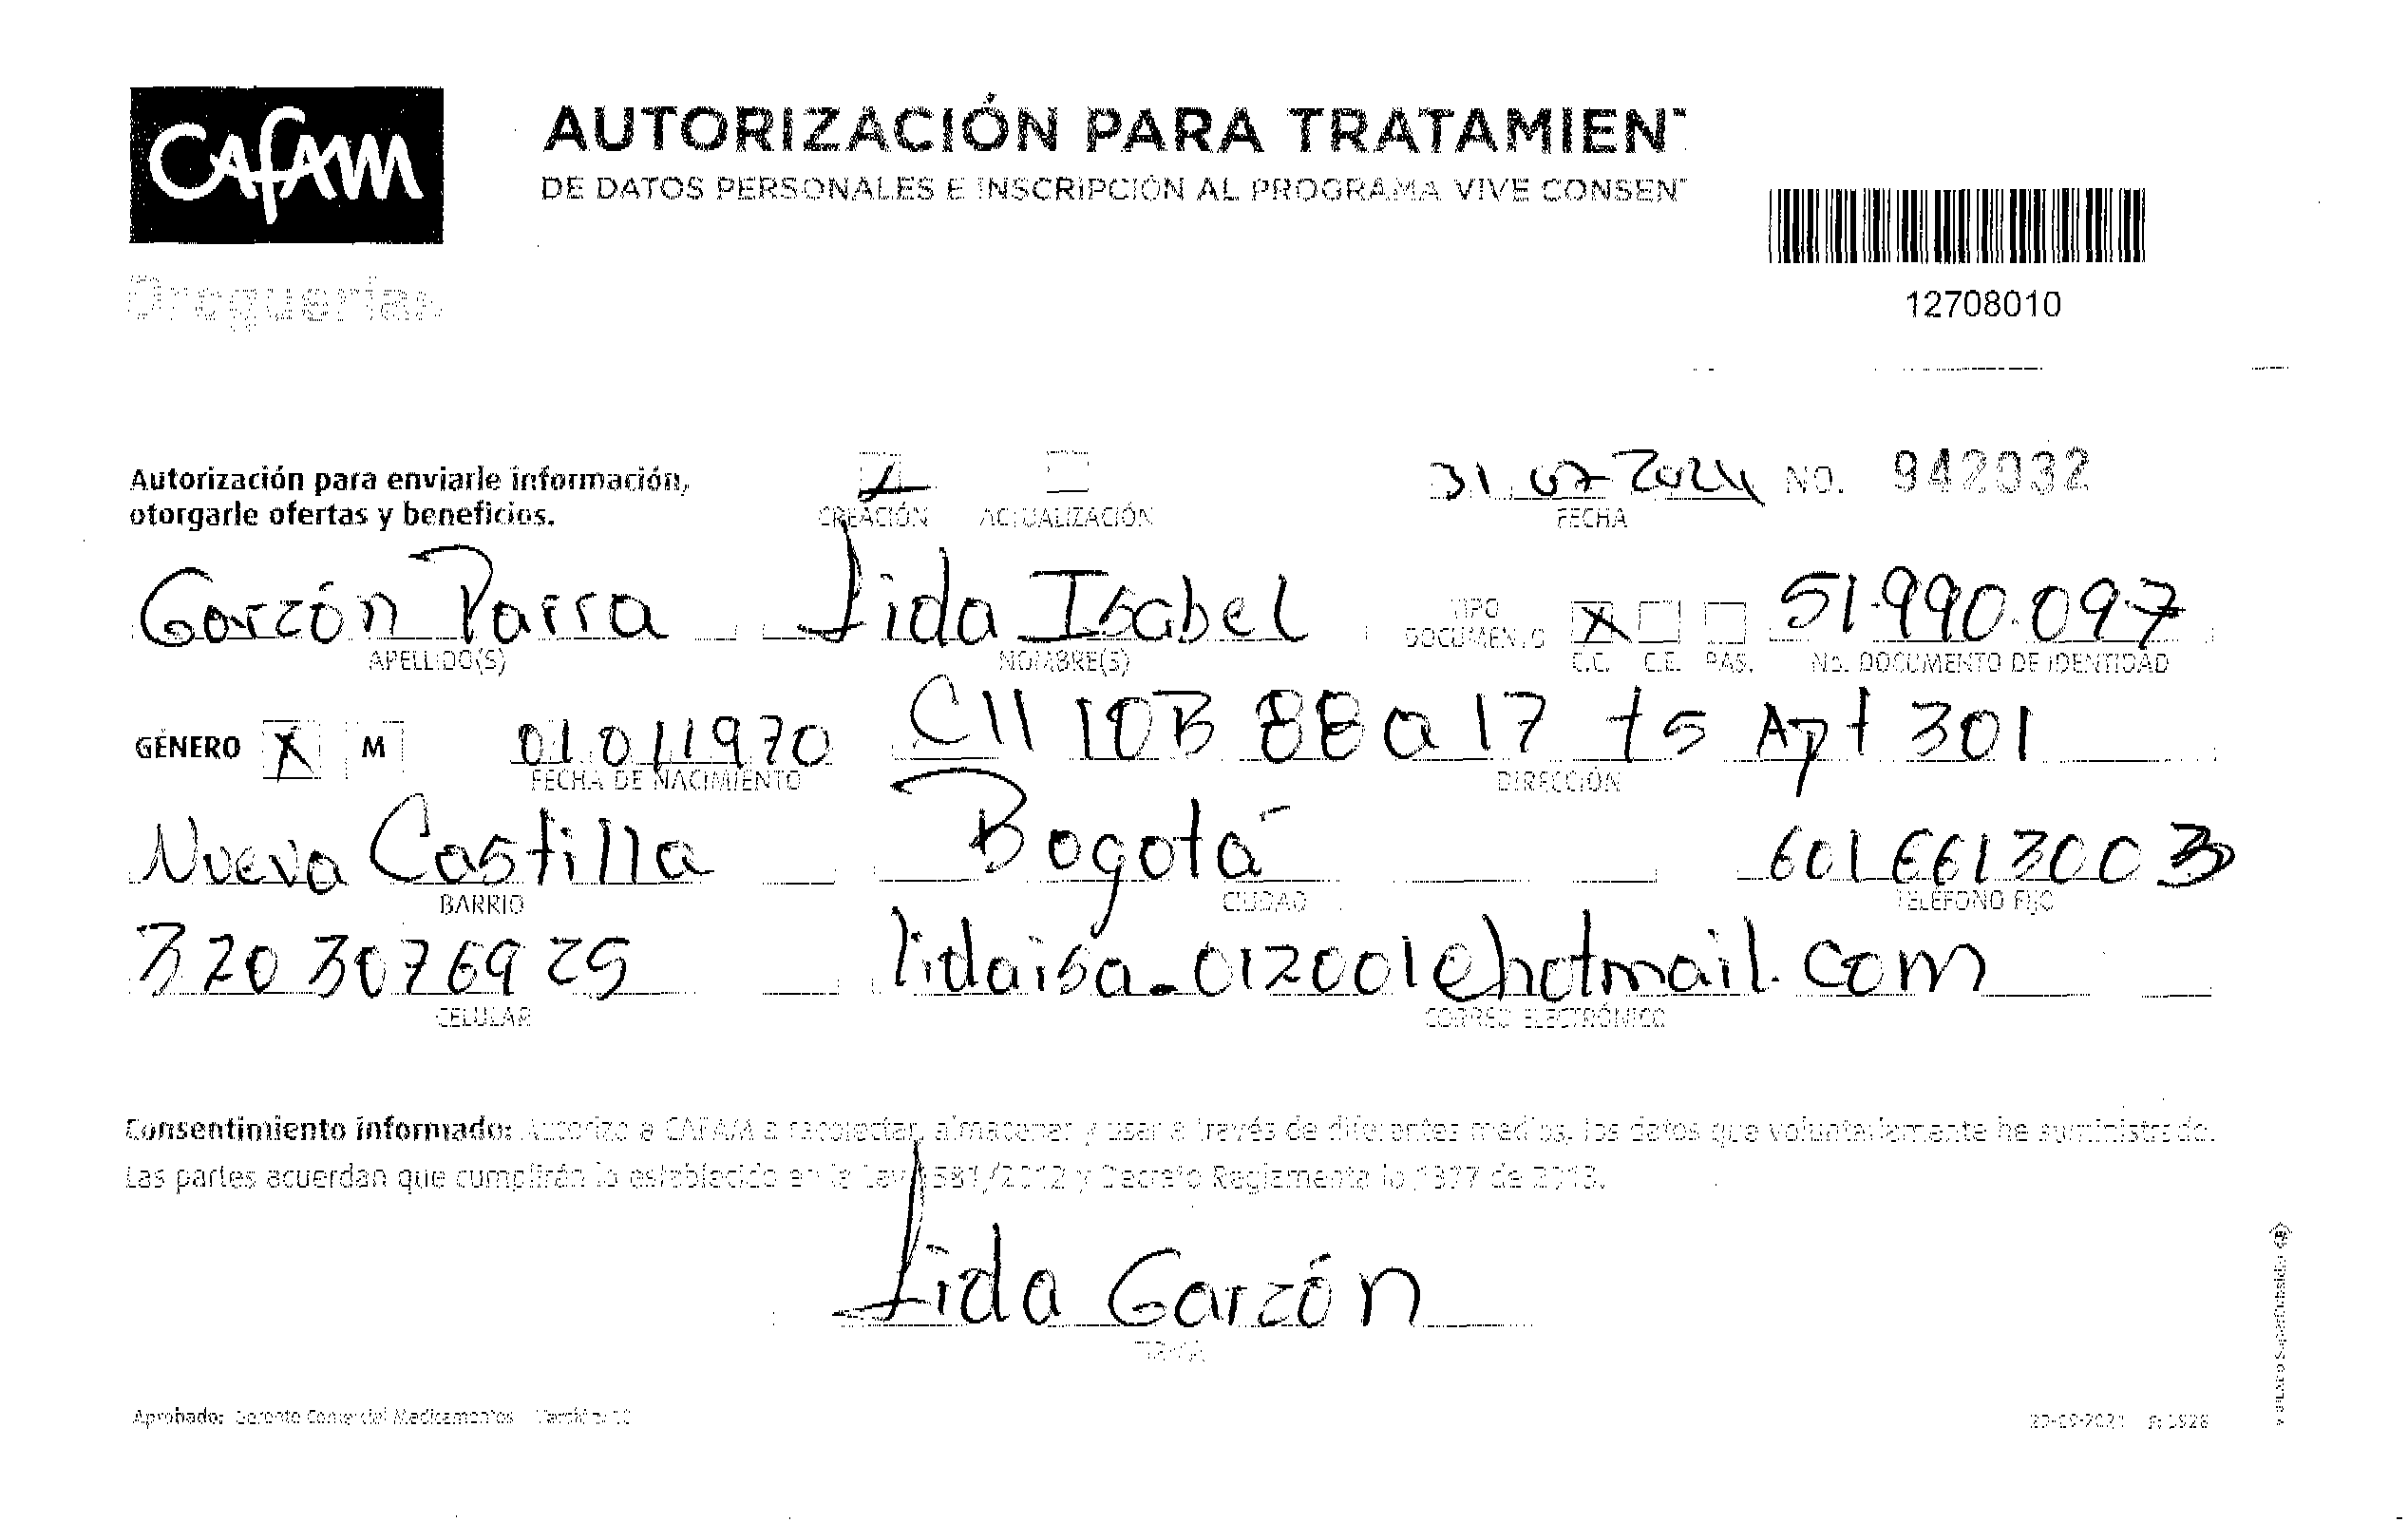 CAFAM
Droguerías
AUTORIZACIÓN PARA TRATAMIEN
DE DATOS PERSONALES E INSCRIPCIÓN AL PROGRAMA VIVE CONSEN
12708010
Autorización para enviarle información,
otorgarle ofertas y beneficios.
X
CREACIÓN ACTUALIZACIÓN
31 07 2024 NO. 942032
FECHA
Garzón Parra Lida Isabel TIPO DOCUMENTO X 51.990.097
APELLIDO(S) NOMBRE(S) C.C. C.E. PAS. No. DOCUMENTO DE IDENTIDAD
GÉNERO X M 01 01 1970 Cll 10B 88a 17 t5 Apt 301
FECHA DE NACIMIENTO DIRECCIÓN
Nueva Castilla Bogotá 601 6613003
BARRIO CIUDAD TELÉFONO FIJO
320 3076925 lidaisa_012001@hotmail.com
CELULAR CORREO ELECTRÓNICO
Consentimiento informado: Autorizo a CAFAM a recolectar, almacenar y usar a través de diferentes medios, los datos que voluntariamente he suministrado.
Las partes acuerdan que cumplirán lo establecido en la Ley 1581/2012 y Decreto Reglamentario 1377 de 2013.
Lida Garzón
FIRMA
Aprobado: Gerente Comercial Medicamentos Versión:
VIGILADO SuperSubsidio